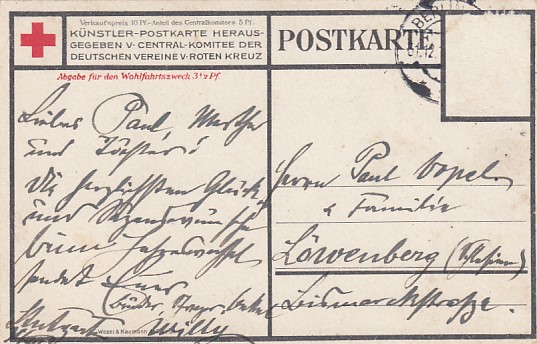 Verkaufspreis 10 Pf.-Anteil des Centralkomitees 5 Pf.
KÜNSTLER-POSTKARTE HERAUS-
GEGEBEN V·CENTRAL-KOMITEE DER
DEUTSCHEN VEREINE V·ROTEN KREUZ
Abgabe für den Wohlfahrtszweck 3½ Pf
POSTKARTE
BERLIN
12
Liebes Paul, Marthe
und Töchter!
Die herzlichsten Glück
und Segenswünsche
beim Jahreswechsel
sendet Euer
Bruder,
Willy
Wezel & Naumann
Herrn Paul
& Familie
Löwenberg (Schlesien)
Bismarckstraße.